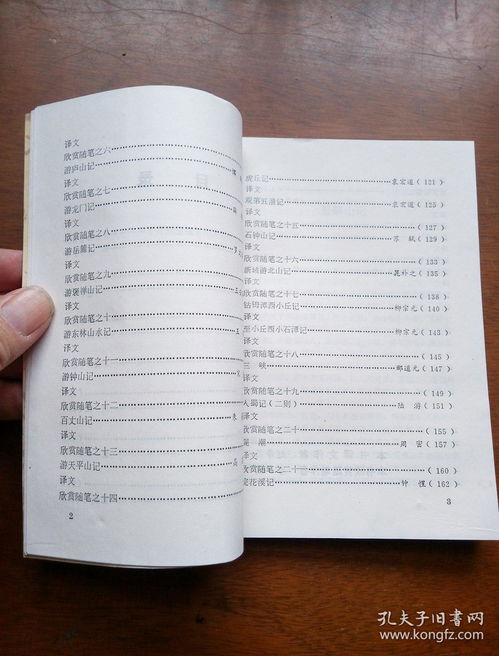 译文
欣赏随笔之六
游庐山记
译文
欣赏随笔之七
游龙门记
译文
欣赏随笔之八
游岳麓记
译文
欣赏随笔之九
游褒禅山记
译文
欣赏随笔之十
游东林山水记
译文
欣赏随笔之十一
游钟山记
译文
欣赏随笔之十二
百丈山记
译文
欣赏随笔之十三
游天平山记
译文
欣赏随笔之十四
2
虎丘记 袁宏道(121)
译文
观第五泄记 袁宏道(125)
译文
欣赏随笔之十五 (127)
石钟山记 苏 轼(129)
译文
欣赏随笔之十六 (133)
新城游北山记 晁补之(135)
译文
欣赏随笔之十七 (138)
钴𬭁潭西小丘记 柳宗元(140)
译文
至小丘西小石潭记 柳宗元(143)
译文
欣赏随笔之十八 (145)
三 峡 郦道元(147)
译文
欣赏随笔之十九 (149)
入蜀记(二则) 陆 游(151)
译文
欣赏随笔之二十 (155)
观 潮 周 密(157)
译文
欣赏随笔之二十一 (160)
浣花溪记 钟 惺(162)
3
孔夫子旧书网
www.kongfz.com